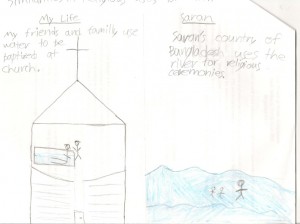 My Life
My friends and family use
water to be
baptized at
church.
Saran
Saran's country of
Bangladesh uses the
river for religious
ceremonies.